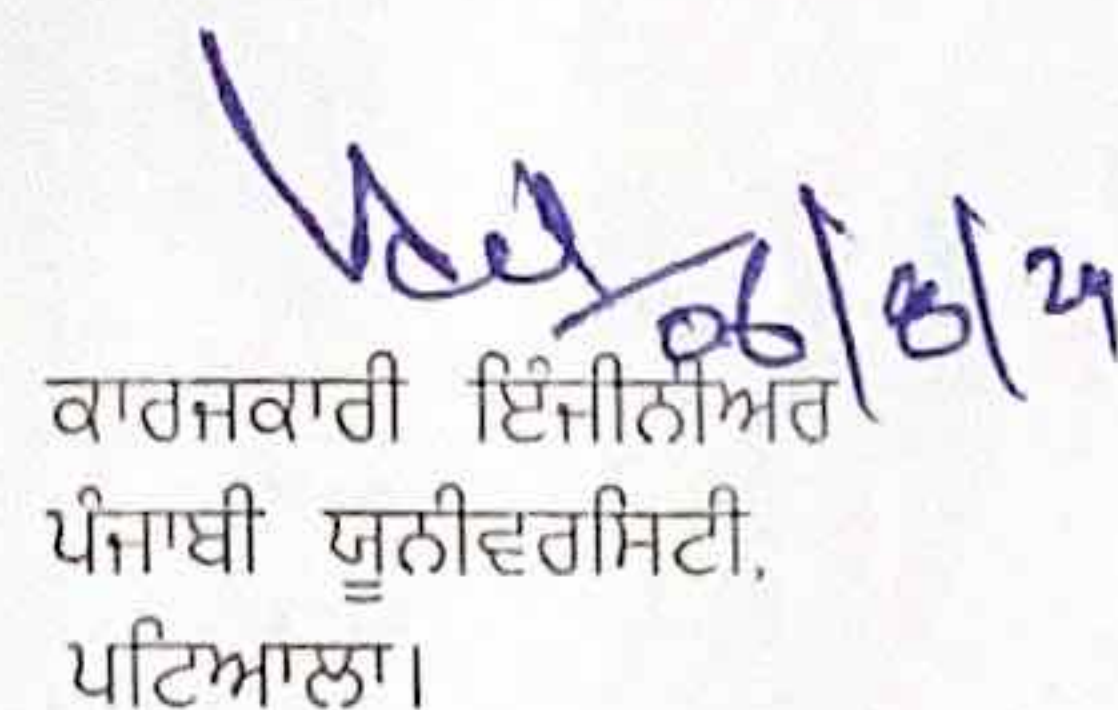 06/8/24
ਕਾਰਜਕਾਰੀ ਇੰਜੀਨੀਅਰ
ਪੰਜਾਬੀ ਯੂਨੀਵਰਸਿਟੀ,
ਪਟਿਆਲਾ।